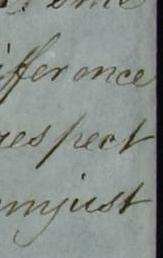 ifference
respect
unjust